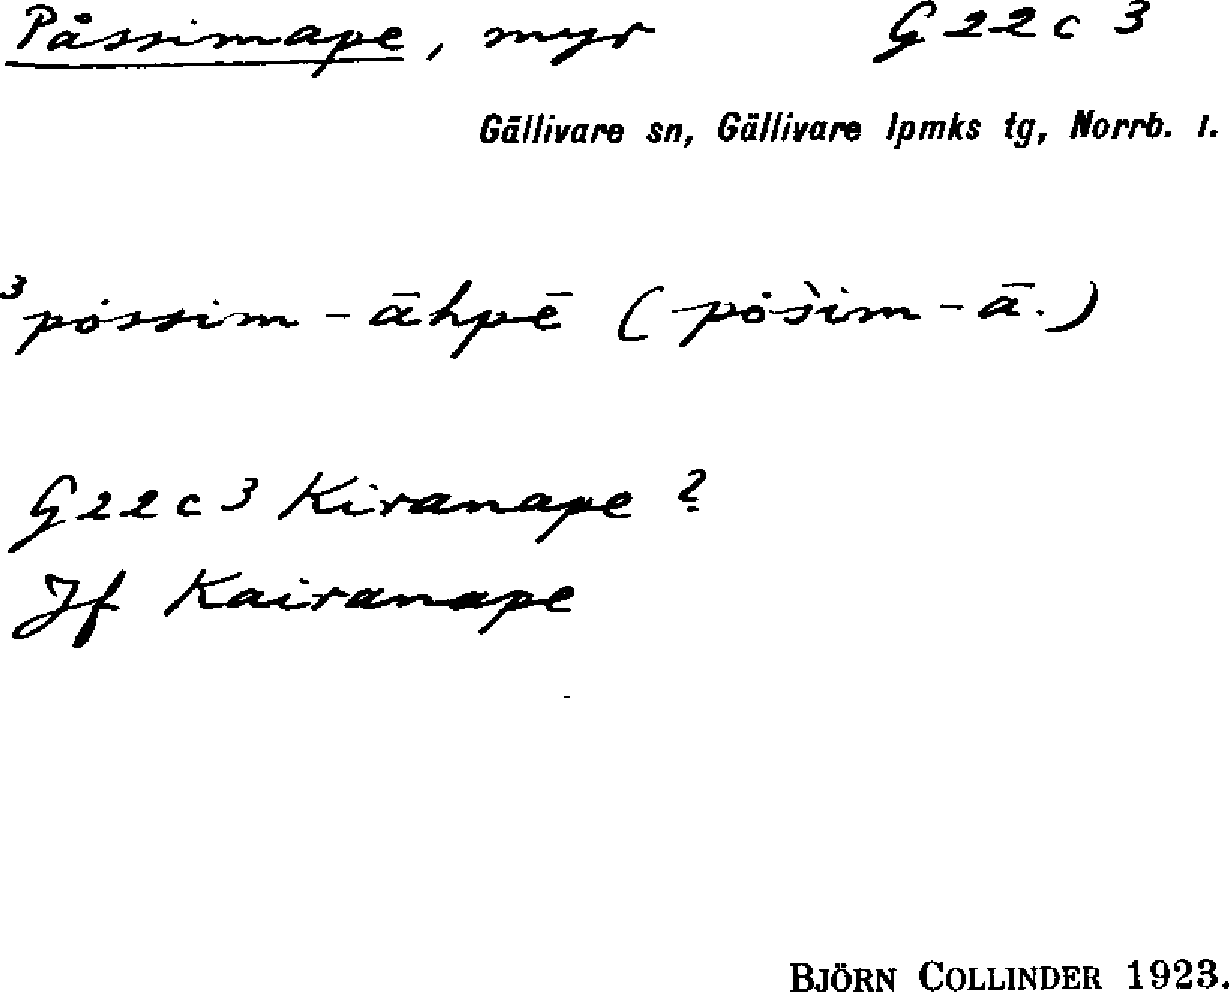 Påssimape, myr G22c3
Gällivare sn, Gällivare lpmks tg, Norrb. l.
³pȯssim-āhpē (pȯs̀im-ā.)
G22c3 Kiranape ?
Jf Kairanape
BJÖRN COLLINDER 1923.